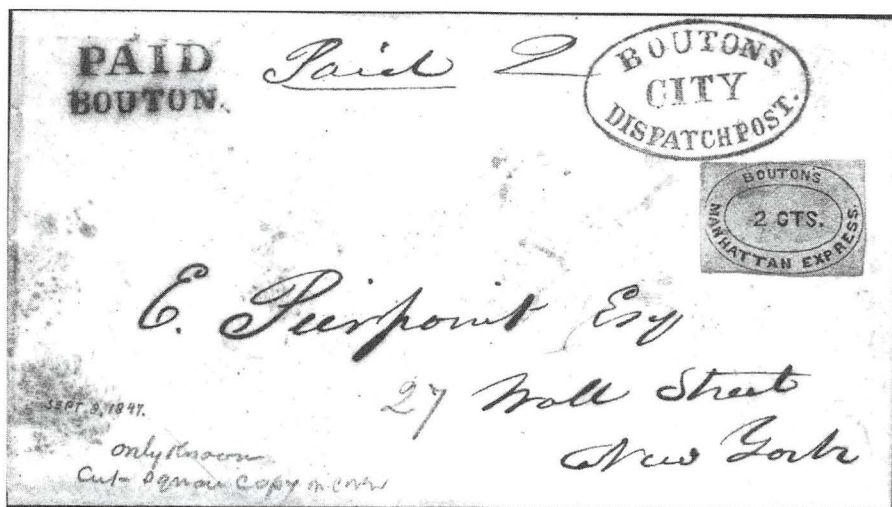 PAID
BOUTON.
Paid 2
BOUTONS
CITY
DISPATCH POST.
BOUTONS
2 CTS.
MANHATTAN EXPRESS.
E. Pierpoint Esq
27 Wall Street
New York
SEPT. 9, 1847.
only known
Cut-square copy on cover